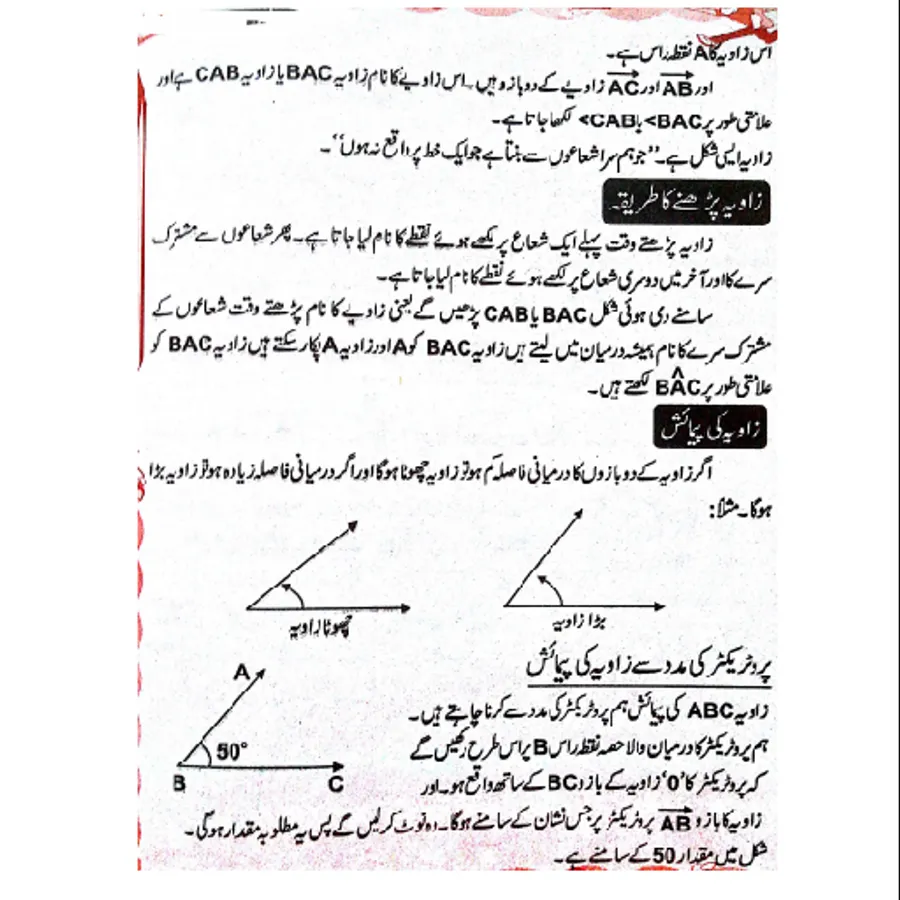 اس زاویہ کا A نقطہ راس ہے۔
اور AB اور AC زاویے کے دو بازو ہیں۔ اس زاویے کا نام زاویہ BAC یا زاویہ CAB ہے اور
علامتی طور پر BAC< یا CAB< لکھا جاتا ہے۔
زاویہ ایسی شکل ہے۔ ”جو ہم سرا شعاعوں سے بنتا ہے جو ایک خط پر واقع نہ ہوں“۔
زاویہ پڑھنے کا طریقہ
زاویہ پڑھتے وقت پہلے ایک شعاع پر لکھے ہوئے نقطے کا نام لیا جاتا ہے۔ پھر شعاعوں سے مشترک
سرے کا اور آخر میں دوسری شعاع پر لکھے ہوئے نقطے کا نام لیا جاتا ہے۔
سامنے دی ہوئی شکل BAC یا CAB پڑھیں گے یعنی زاویے کا نام پڑھتے وقت شعاعوں کے
مشترک سرے کا نام ہمیشہ درمیان میں لیتے ہیں زاویہ BAC کو A اور زاویہ A پکار سکتے ہیں زاویہ BAC کو
علامتی طور پر BÂC لکھتے ہیں۔
زاویہ کی پیمائش
اگر زاویہ کے دو بازوں کا درمیانی فاصلہ کم ہو تو زاویہ چھوٹا ہوگا اور اگر درمیانی فاصلہ زیادہ ہو تو زاویہ بڑا
ہوگا۔ مثلاً:
بڑا زاویہ
چھوٹا زاویہ
پروٹریکٹر کی مدد سے زاویہ کی پیمائش
زاویہ ABC کی پیمائش ہم پروٹریکٹر کی مدد سے کرنا چاہتے ہیں۔
ہم پروٹریکٹر کا درمیان والا حصہ نقطہ راس B پر اس طرح رکھیں گے
کہ پروٹریکٹر کا '0' زاویہ کے بازو BC کے ساتھ واقع ہو۔ اور
زاویہ کا بازو AB پروٹریکٹر پر جس نشان کے سامنے ہوگا۔ وہ نوٹ کر لیں گے پس یہ مطلوبہ مقدار ہوگی۔
شکل میں مقدار 50 کے سامنے ہے۔
A
50°
B
C